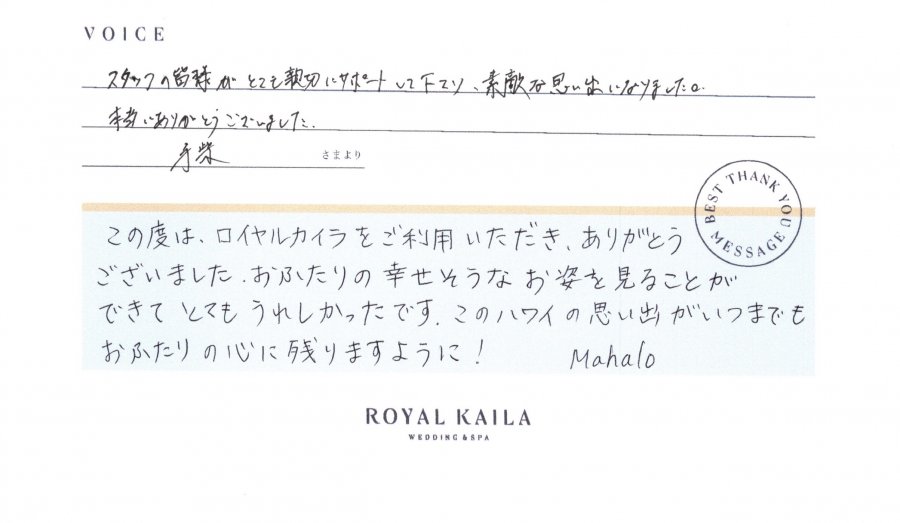 VOICE
スタッフの皆様がとても親切にサポートして下さり、素敵な思い出になりました。
本当にありがとうございました。
さまより
BEST THANK YOU MESSAGE
この度は、ロイヤルカイラをご利用いただき、ありがとう
ございました。おふたりの幸せそうなお姿を見ることが
できてとてもうれしかったです。このハワイの思い出がいつまでも
おふたりの心に残りますように!
Mahalo
ROYAL KAILA
WEDDING & SPA